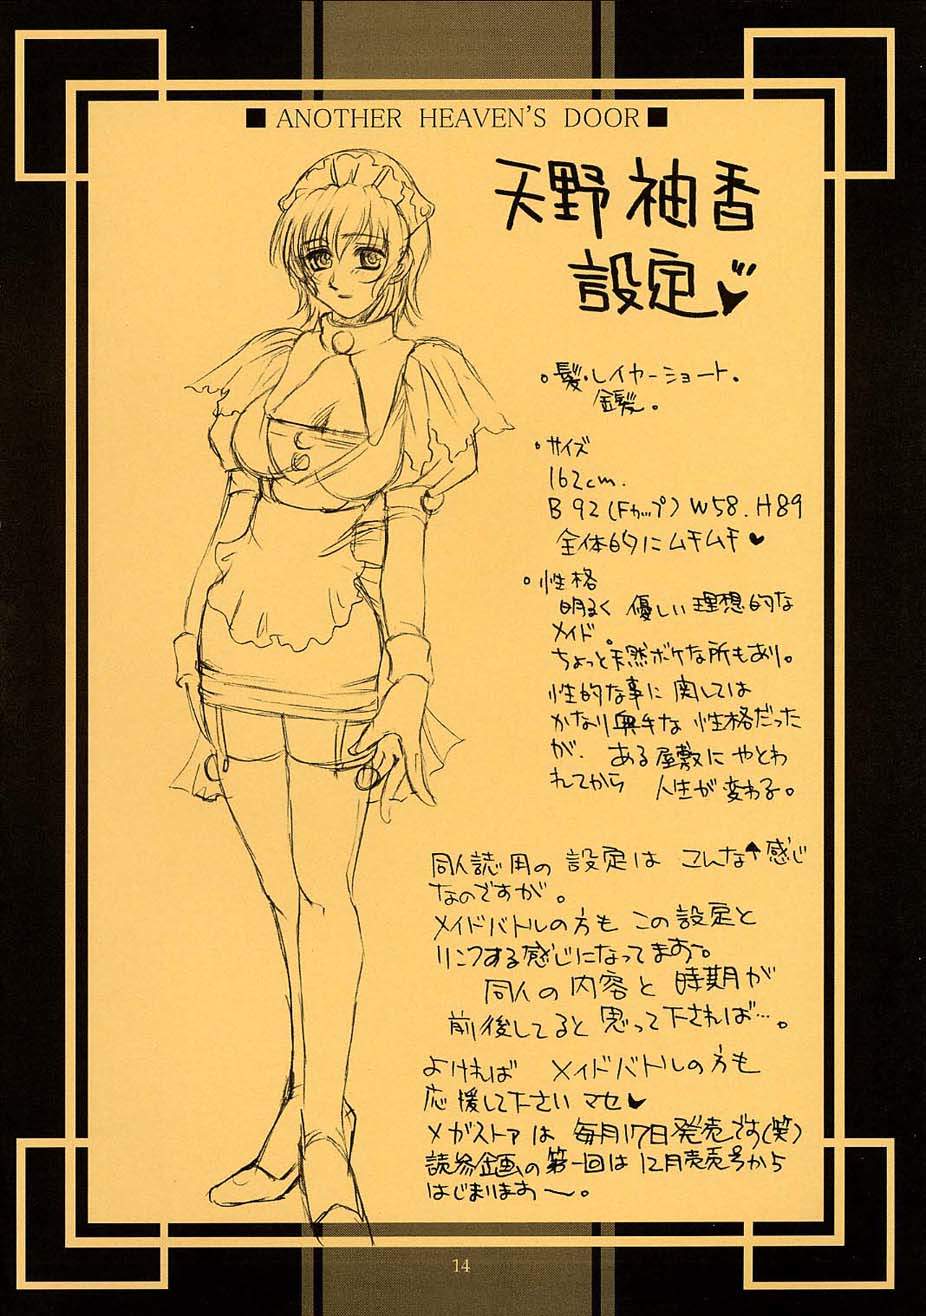 ■ ANOTHER HEAVEN'S DOOR ■
天野 袖香
設定♥
・髪・レイヤーショート。
金髪。
・サイズ
162cm.
B 92 (Fカップ) W58. H89
全体的にムチムチ♥
・性格
明るく 優しい 理想的な
メイド。
ちょっと天然ボケな所もあり。
性的な事に 関しては
かなり奥手な 性格だった
が. ある屋敷に やとわ
れてから 人生が 変わる。
同人誌用の 設定は こんな↑感じ
なのですが。
メイドバトルの方も この設定と
リンクする感じになってます。
同人の 内容と 時期が
前後してると 思って下されば…。
よければ メイドバトルの方も
応援して下さいマセ♥
メガストアは 毎月17日発売です(笑)
読参企画の 第一回は 12月売号から
はじまりまお〜。
14